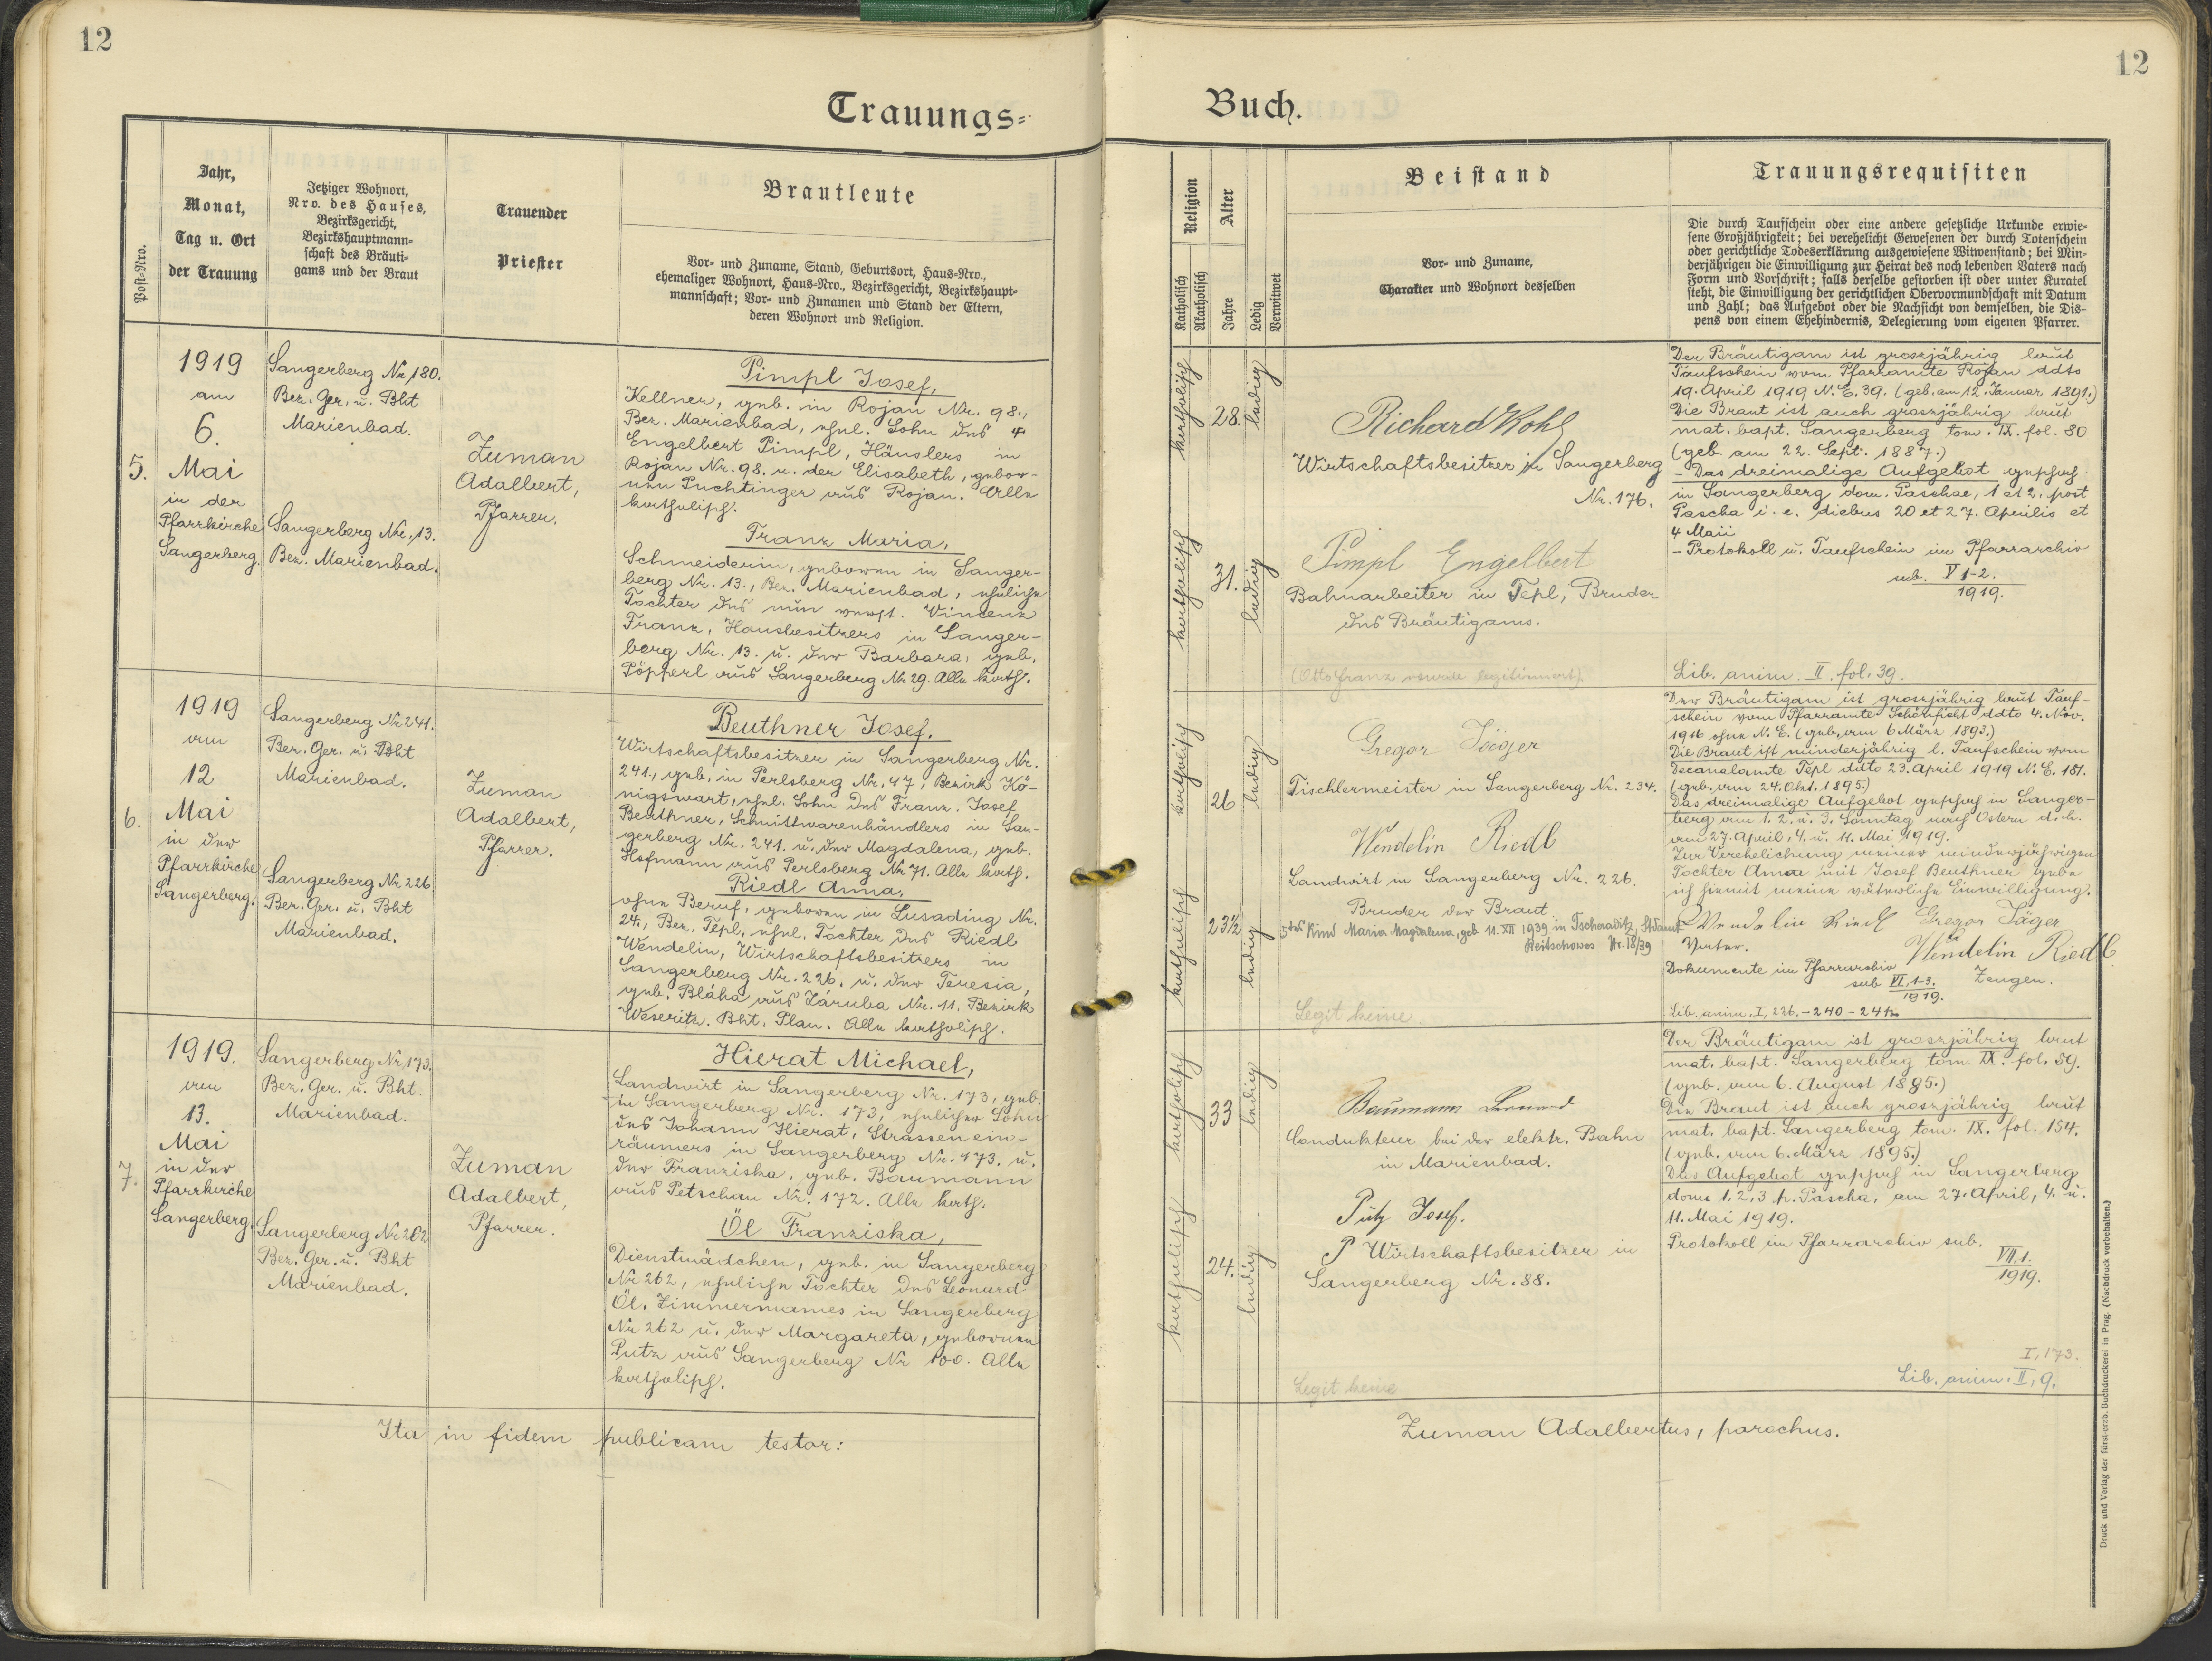 12
Trauungs=
Post=Nro.
Jahr,
Monat,
Tag u. Ort
der Trauung
Jetziger Wohnort,
Nro. des Hauses,
Bezirksgericht,
Bezirkshauptmann=
schaft des Bräuti=
gams und der Braut
Trauender
Priester
Brautleute
Vor= und Zuname, Stand, Geburtsort, Haus=Nro.,
ehemaliger Wohnort, Haus=Nro., Bezirksgericht, Bezirkshaupt=
mannschaft; Vor= und Zunamen und Stand der Eltern,
deren Wohnort und Religion.
5.
1919
am
6.
Mai
in der
Pfarrkirche
Sangerberg.
Sangerberg Nr. 180.
Bez. Ger. u. Bht
Marienbad.
Sangerberg Nr. 13.
Bez. Marienbad.
Zuman
Adalbert,
Pfarrer.
Pimpl Josef,
Kellner, geb. in Rojau Nr. 98.,
Bez. Marienbad, ehel. Sohn des
Engelbert Pimpl, Häuslers in
Rojau Nr. 98. u. der Elisabeth, gebor-
nen Puchtinger aus Rojau. Alle
katholisch.
Franz Maria,
Schneiderin, geboren in Sanger-
berg Nr. 13., Bez. Marienbad, eheliche
Tochter des nun verst. Vincenz
Franz, Hausbesitzers in Sanger-
berg Nr. 13. u. der Barbara, geb.
Pöpperl aus Sangerberg Nr 29. Alle kath.
6.
1919
am
12
Mai
in der
Pfarrkirche
Sangerberg.
Sangerberg Nr 241.
Bez. Ger. u. Bht
Marienbad.
Sangerberg Nr 226.
Bez. Ger. u. Bht
Marienbad.
Zuman
Adalbert,
Pfarrer.
Beuthner Josef.
Wirtschaftsbesitzer in Sangerberg Nr.
241., geb. in Perlsberg Nr. 47, Bezirk Kö-
nigswart, ehel. Sohn des Franz Josef
Beuthner, Schnittwarenhändlers in San-
gerberg Nr. 241. u. der Magdalena, geb.
Hofmann aus Perlsberg Nr 71. Alle kath.
Riedl Anna,
ohne Beruf, geboren in Lusading Nr.
24., Bez. Tepl, ehel. Tochter des Riedl
Wendelin, Wirtschaftsbesitzers in
Sangerberg Nr. 226. u. der Teresia,
geb. Bláha aus Záruba Nr. 11. Bezirk
Weseritz. Bht. Plan. Alle katholisch.
7.
1919.
am
13.
Mai
in der
Pfarrkirche
Sangerberg.
Sangerberg Nr 173.
Bez. Ger. u. Bht.
Marienbad.
Sangerberg Nr 262
Bez. Ger. u. Bht
Marienbad.
Zuman
Adalbert,
Pfarrer.
Hierat Michael,
Landwirt in Sangerberg Nr. 173, geb.
in Sangerberg Nr. 173, ehelicher Sohn
des Johann Hierat, Strassenein-
räumers in Sangerberg Nr. 173. u.
der Franziska, geb. Baumann
aus Petschau Nr. 172. Alle kath.
Öl Franziska,
Dienstmädchen, geb. in Sangerberg
Nr 262, eheliche Tochter des Leonard
Öl, Zimmermannes in Sangerberg
Nr 262 u. der Margareta, geborenen
Putz aus Sangerberg Nr 100. Alle
katholisch.
Ita in fidem publicam testor:
12
Buch.
Religion
Katholisch
Akatholisch
Alter
Jahre
Ledig
Verwitwet
Beistand
Vor= und Zuname,
Charakter und Wohnort desselben
Trauungsrequisiten
Die durch Taufschein oder eine andere gesetzliche Urkunde erwie=
sene Großjährigkeit; bei verehelicht Gewesenen der durch Totenschein
oder gerichtliche Todeserklärung ausgewiesene Witwenstand; bei Min=
derjährigen die Einwilligung zur Heirat des noch lebenden Vaters nach
Form und Vorschrift; falls derselbe gestorben ist oder unter Kuratel
steht, die Einwilligung der gerichtlichen Obervormundschaft mit Datum
und Zahl; das Aufgebot oder die Nachsicht von demselben, die Dis=
pens von einem Ehehindernis, Delegierung vom eigenen Pfarrer.
katholisch
28.
ledig
katholisch
31.
ledig
Richard Kohl
Wirtschaftsbesitzer in Sangerberg
Nr. 176.
Pimpl Engelbert
Bahnarbeiter in Tepl, Bruder
des Bräutigams.
(Otto Franz wurde legitimiert).
Der Bräutigam ist grossjährig laut
Taufschein vom Pfarramte Rojau ddto
19. April 1919 N. E. 39. (geb. am 12. Januar 1891.)
Die Braut ist auch grossjährig laut
mat. bapt. Sangerberg tom. IX. fol. 80
(geb. am 22. Sept. 1887.)
- Das dreimalige Aufgebot geschah
in Sangerberg dom. Paschae, 1 et 2. post
Pascha i. e. diebus 20 et 27. Aprilis et
4 Maii
- Protokoll u. Taufschein im Pfarrarchiv
sub. V 1-2.
1919.
Lib. anim. II. fol. 39.
katholisch
26
ledig
katholisch
23½
ledig
Gregor Jäger
Tischlermeister in Sangerberg Nr. 234.
Wendelin Riedl
Landwirt in Sangerberg Nr. 226.
Bruder der Braut
5tes Kind Maria Magdalena, geb 11. XII 1939 in Tscheraditz, StdAmt
Reitschowes Nr. 18/39
Legit keine
Der Bräutigam ist grossjährig laut Tauf-
schein vom Pfarramte Schönficht ddto 4. Nov.
1916 ohne N. E. (geb. am 6 März 1893.)
Die Braut ist minderjährig l. Taufschein vom
Decanalamte Tepl ddto 23. April 1919 N. E. 181.
(geb. am 24. Okt. 1895.)
Das dreimalige Aufgebot geschah in Sanger-
berg am 1. 2. u. 3. Sonntag nach Ostern d. h.
am 27. April, 4. u. 11. Mai 1919.
Zur Verehelichung meiner minderjährigen
Tochter Anna mit Josef Beuthner gebe
ich hiemit meine väterliche Einwilligung.
Wendelin Riedl Gregor Jäger
Vater. Wendelin Riedl
Dokumente im Pfarrarchiv Zeugen.
sub VI, 1-3.
1919.
Lib. anim. I, 226. - 240 - 241
katholisch
33
ledig
katholisch
24.
ledig
Baumann
Condukteur bei der elektr. Bahn
in Marienbad.
Putz Josef.
Wirtschaftsbesitzer in
Sangerberg Nr. 88.
Legit keine
Der Bräutigam ist grossjährig laut
mat. bapt. Sangerberg tom. IX. fol. 59.
(geb. am 6. August 1885.)
Die Braut ist auch grossjährig laut
mat. bapt. Sangerberg tom. IX. fol. 154.
(geb. am 6. März 1895.)
Das Aufgebot geschah in Sangerberg
dom 1. 2. 3 p. Pascha, am 27. April, 4. u.
11. Mai 1919.
Protokoll im Pfarrarchiv sub.
VII. 1.
1919.
I, 173.
Lib. anim. II, 9.
Zuman Adalbertus, parochus.
Druck und Verlag der fürst-erzb. Buchdruckerei in Prag. (Nachdruck vorbehalten.)